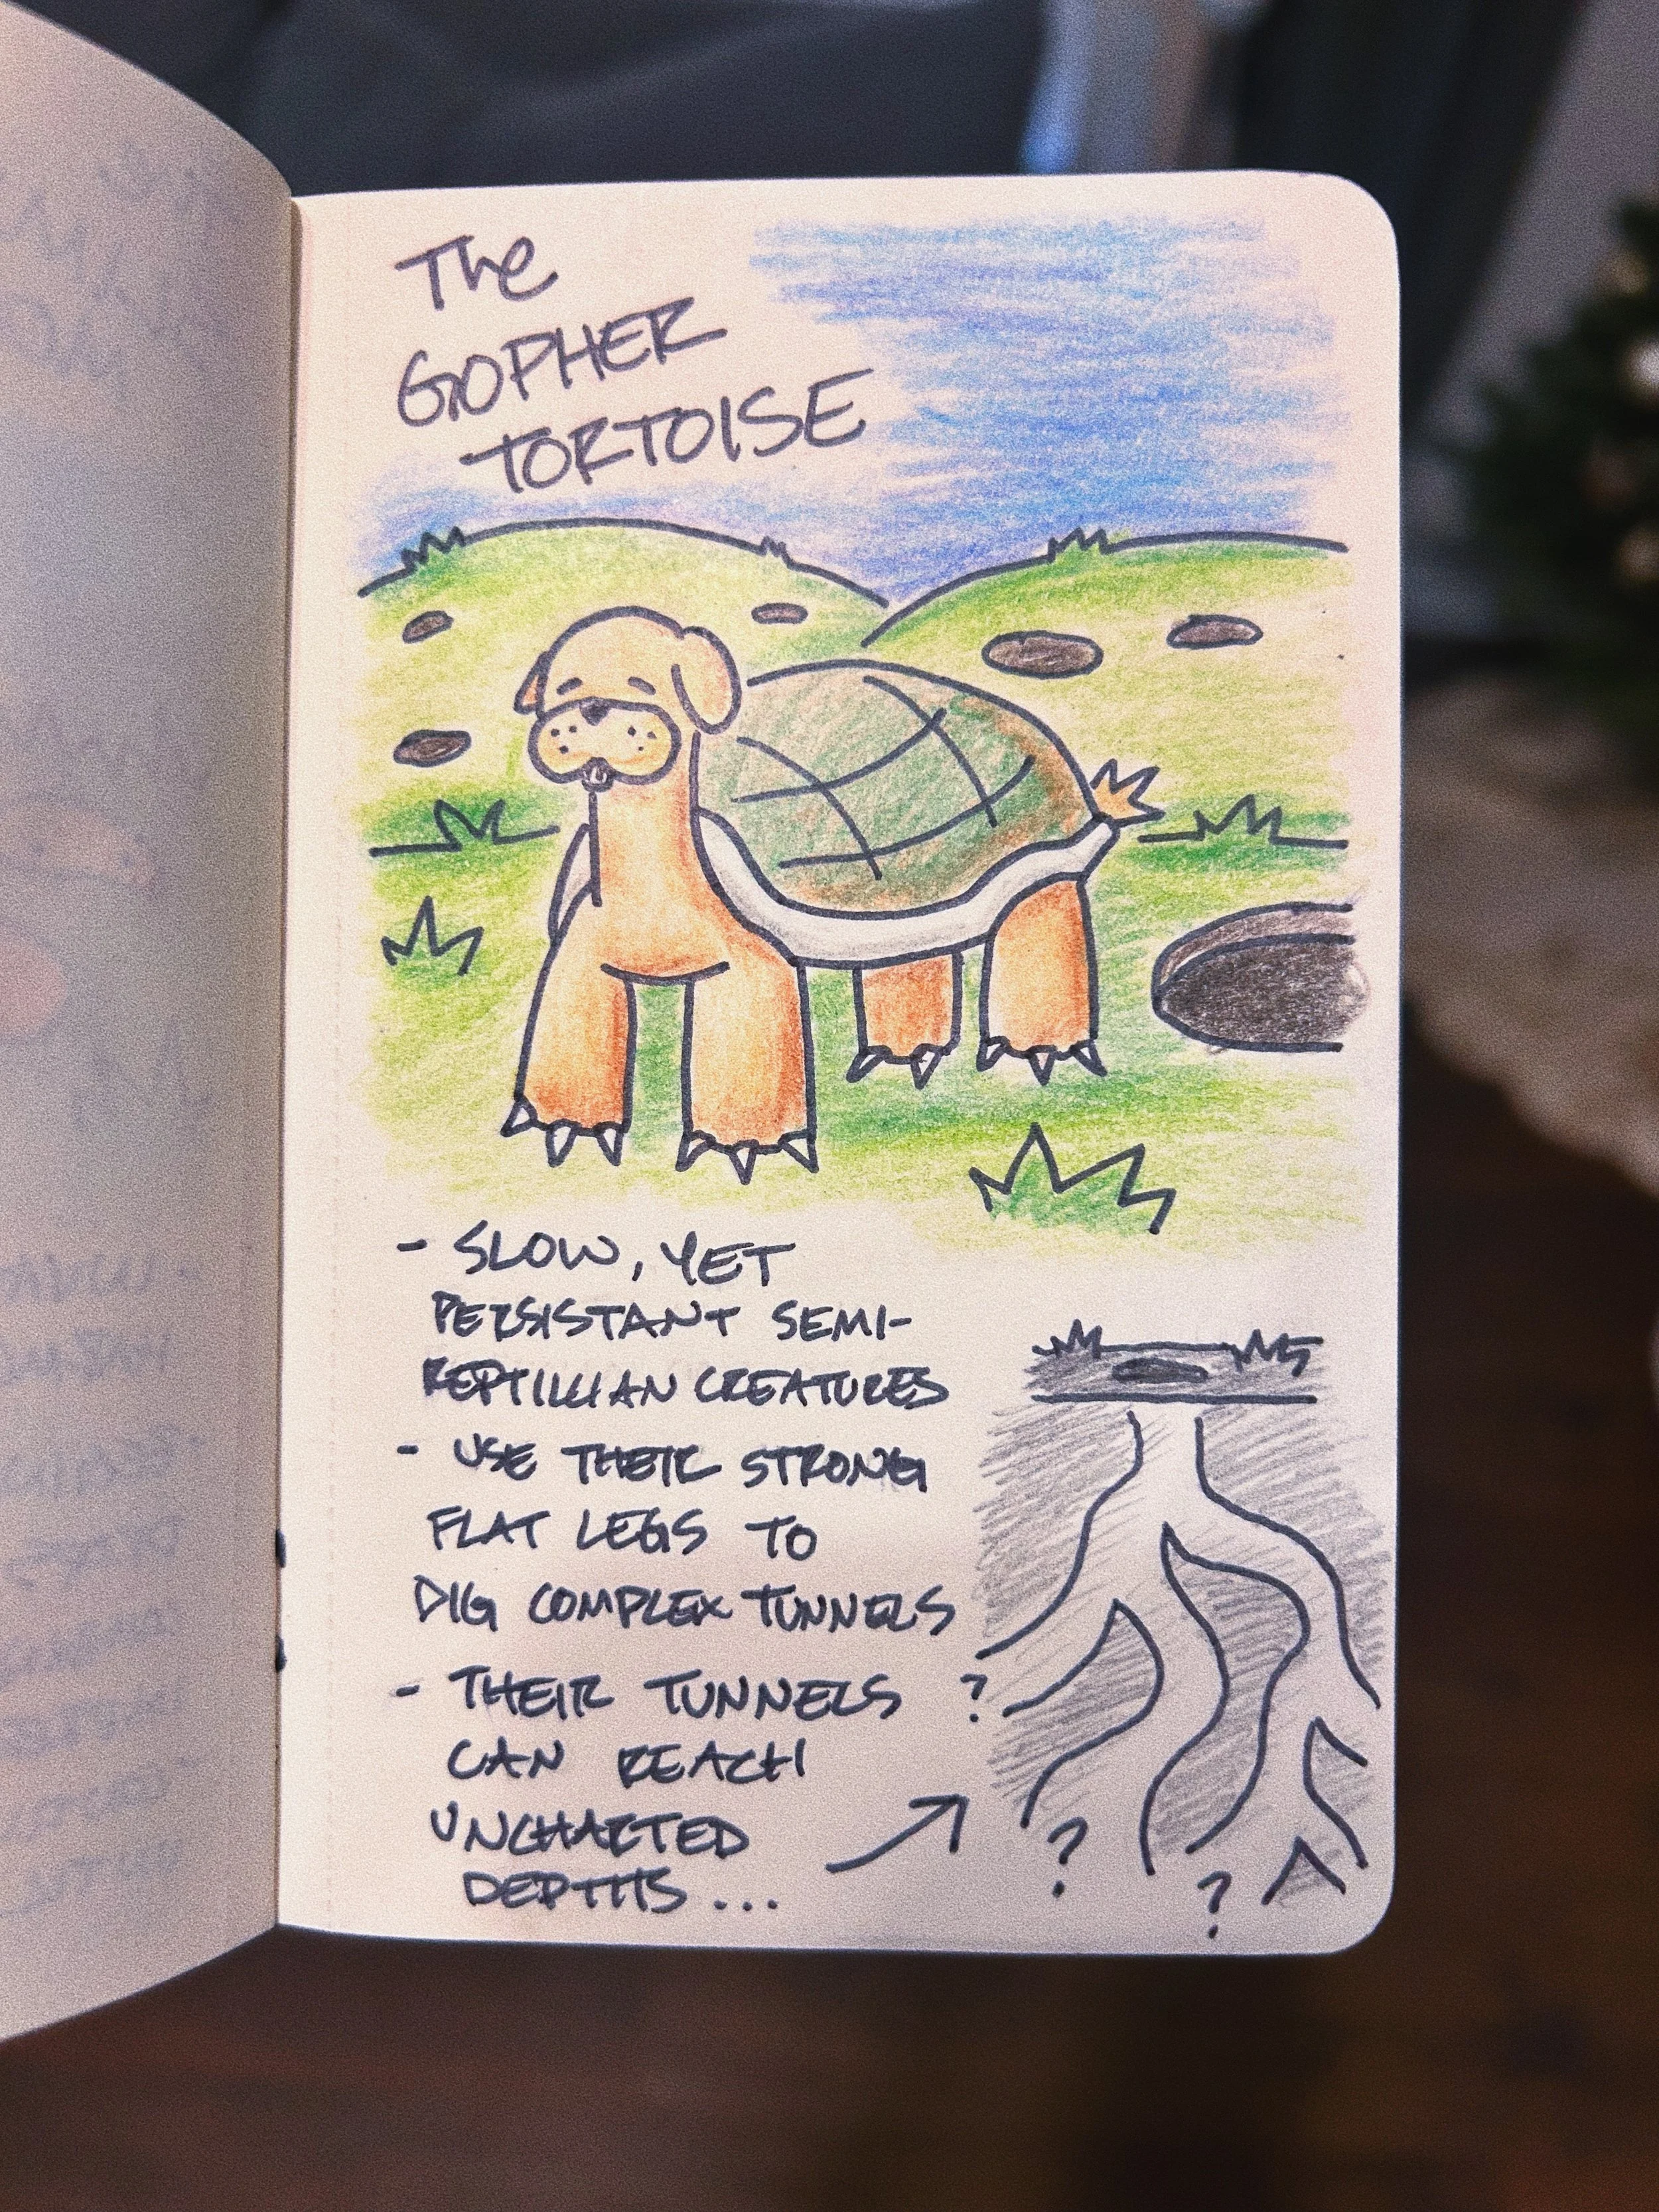 The
GOPHER
TORTOISE
- SLOW, YET
PERSISTANT SEMI-
REPTILLIAN CREATURES
- USE THEIR STRONG
FLAT LEGS TO
DIG COMPLEX TUNNELS
- THEIR TUNNELS
CAN REACH
UNCHARTED
DEPTHS ...
?
?
?